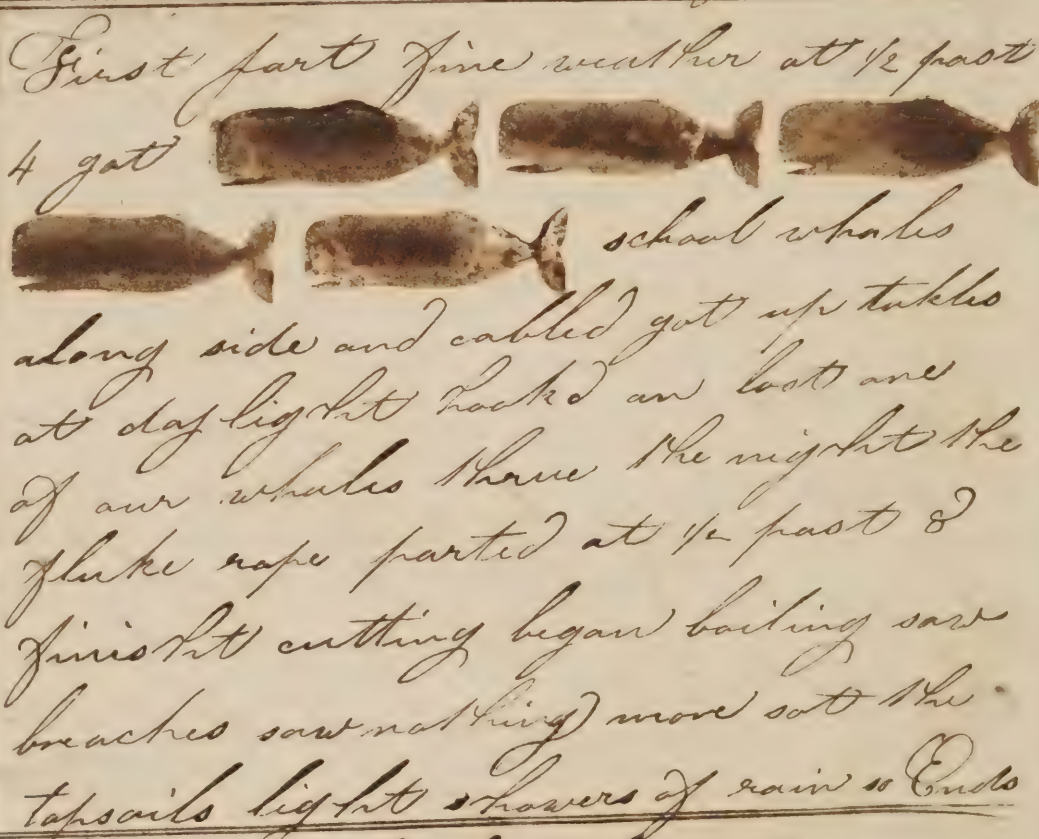 First part fine weather at 1/2 past
4 got
school whales
along side and cabled got up takles
at day light hookd on lost one
of our whales thrue the night the
fluke rope parted at 1/2 past 8
finisht cutting began boiling saw
breaches saw nothing more sott the
topsails light showers of rain so Ends